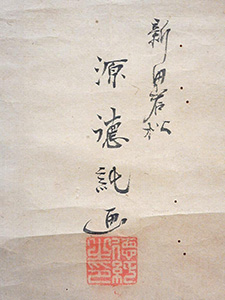 新田岩松
源德純画